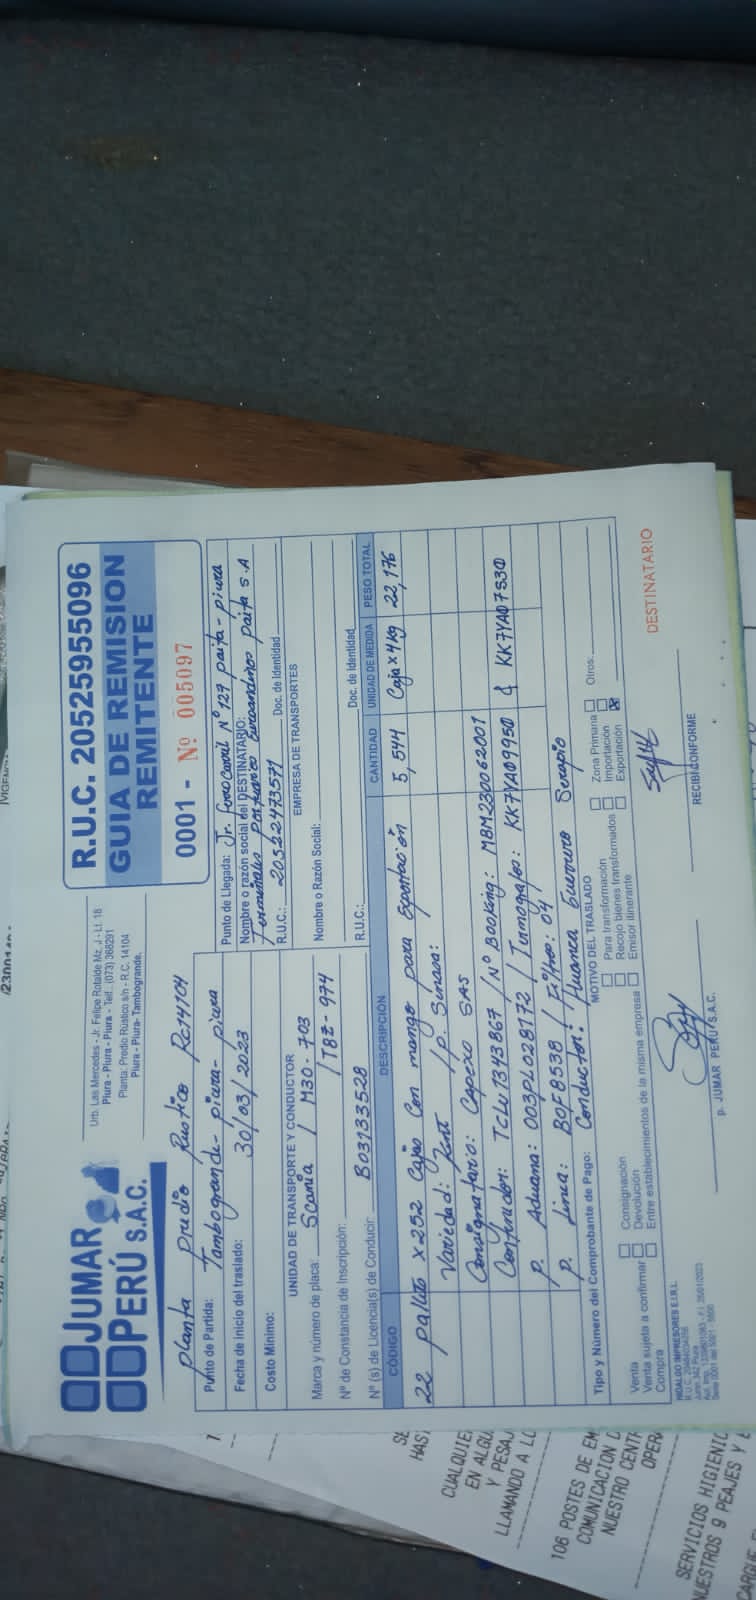 JUMAR
PERÚ S.A.C.
Urb. Las Mercedes - Jr. Felipe Rotalde Mz. J - Lt. 18
Piura - Piura - Piura - Telf.: (073) 368291
Planta: Predio Rústico s/n - R.C. 14104
Piura - Piura- Tambogrande.
R.U.C. 20525955096
GUIA DE REMISION
REMITENTE
0001 - Nº 005097
Planta Predio Rustico Rc14104
Punto de Partida: Tambogrande- piura- piura
Fecha de Inicio del traslado: 30/03/2023
Costo Mínimo:
Punto de Llegada: Jr. ferrocarril Nº 127 paita - piura
Nombre o razón social del DESTINATARIO:
Terminales portuarios Euroandinos Paita S.A
R.U.C.: 20522473571 Doc. de Identidad
UNIDAD DE TRANSPORTE Y CONDUCTOR
Marca y número de placa: Scania / M30-703
/T8Z-974
Nº de Constancia de Inscripción:
Nº (s) de Licencia(s) de Conducir: B03133528
EMPRESA DE TRANSPORTES
Nombre o Razón Social:
R.U.C.: Doc. de Identidad
CÓDIGO DESCRIPCIÓN CANTIDAD UNIDAD DE MEDIDA PESO TOTAL
22 pallets x252 Cajas Con mango para Exportación 5,544 Caja x 4kg 22,176
Variedad: Kent /p. Senasa:
Consignatario: Capexo SAS
Contenedor: TCLU1343867 /Nº Booking: MBM230062001
p. Aduana: 003PL028172 / Termografos: KK7YA09950 & KK7YA07530
p. Linea: BOF8538 / Filtros: 04
Conductor: Huanca Guerrero Serapio
Tipo y Número del Comprobante de Pago:
MOTIVO DEL TRASLADO
Venta
Venta sujeta a confirmar
Compra
Consignación
Devolución
Entre establecimientos de la misma empresa
Para transformación
Recojo bienes transformados
Emisor itinerante
Zona Primaria
Importación
Exportación
Otros:
HIDALGO IMPRESORES E.I.R.L.
p. JUMAR PERÚ S.A.C.
RECIBÍ CONFORME
DESTINATARIO
CUALQUIE
EN ALGU
Y PESAJ
LLAMANDO A LO
106 POSTES DE EM
COMUNICACION D
NUESTRO CENT
OPERA
SERVICIOS HIGIENIC
NUESTROS 9 PEAJES Y E